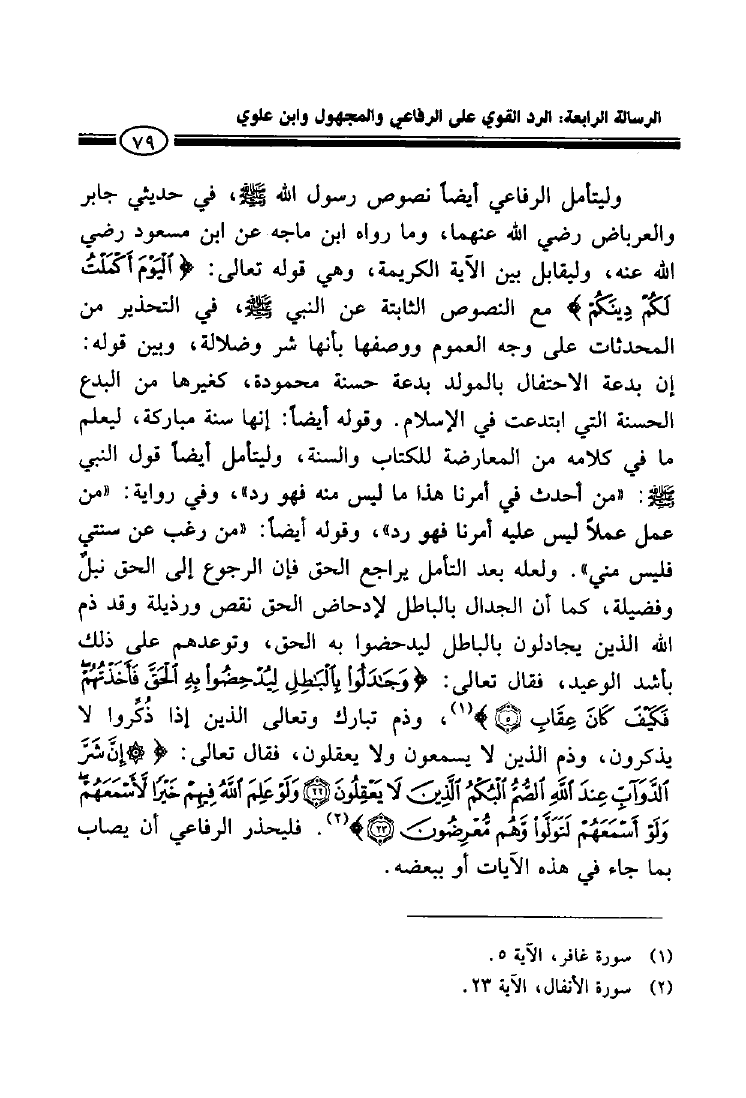 الرسالة الرابعة: الرد القوي على الرفاعي والمجهول وابن علوي
٧٩
وليتأمل الرفاعي أيضاً نصوص رسول الله ﷺ، في حديثي جابر
والعرباض رضي الله عنهما، وما رواه ابن ماجه عن ابن مسعود رضي
الله عنه، وليقابل بين الآية الكريمة، وهي قوله تعالى: ﴿ ٱلْيَوْمَ أَكْمَلْتُ
لَكُمْ دِينَكُمْ ﴾ مع النصوص الثابتة عن النبي ﷺ، في التحذير من
المحدثات على وجه العموم ووصفها بأنها شر وضلالة، وبين قوله:
إن بدعة الاحتفال بالمولد بدعة حسنة محمودة، كغيرها من البدع
الحسنة التي ابتدعت في الإسلام. وقوله أيضاً: إنها سنة مباركة، ليعلم
ما في كلامه من المعارضة للكتاب والسنة، وليتأمل أيضاً قول النبي
ﷺ: «من أحدث في أمرنا هذا ما ليس منه فهو رد»، وفي رواية: «من
عمل عملاً ليس عليه أمرنا فهو رد»، وقوله أيضاً: «من رغب عن سنتي
فليس مني». ولعله بعد التأمل يراجع الحق فإن الرجوع إلى الحق نبلٌ
وفضيلة، كما أن الجدال بالباطل لإدحاض الحق نقص ورذيلة وقد ذم
الله الذين يجادلون بالباطل ليدحضوا به الحق، وتوعدهم على ذلك
بأشد الوعيد، فقال تعالى: ﴿ وَجَٰدَلُوا۟ بِٱلْبَٰطِلِ لِيُدْحِضُوا۟ بِهِ ٱلْحَقَّ فَأَخَذْتُهُمْ ۖ
فَكَيْفَ كَانَ عِقَابِ ۝٥ ﴾(١)، وذم تبارك وتعالى الذين إذا ذُكِّروا لا
يذكرون، وذم الذين لا يسمعون ولا يعقلون، فقال تعالى: ﴿ ۞ إِنَّ شَرَّ
ٱلدَّوَآبِّ عِندَ ٱللَّهِ ٱلصُّمُّ ٱلْبُكْمُ ٱلَّذِينَ لَا يَعْقِلُونَ ۝٢٢ وَلَوْ عَلِمَ ٱللَّهُ فِيهِمْ خَيْرًا لَّأَسْمَعَهُمْ ۖ
وَلَوْ أَسْمَعَهُمْ لَتَوَلَّوا۟ وَّهُم مُّعْرِضُونَ ۝٢٣ ﴾(٢). فليحذر الرفاعي أن يصاب
بما جاء في هذه الآيات أو ببعضه.
(١) سورة غافر، الآية ٥.
(٢) سورة الأنفال، الآية ٢٣.